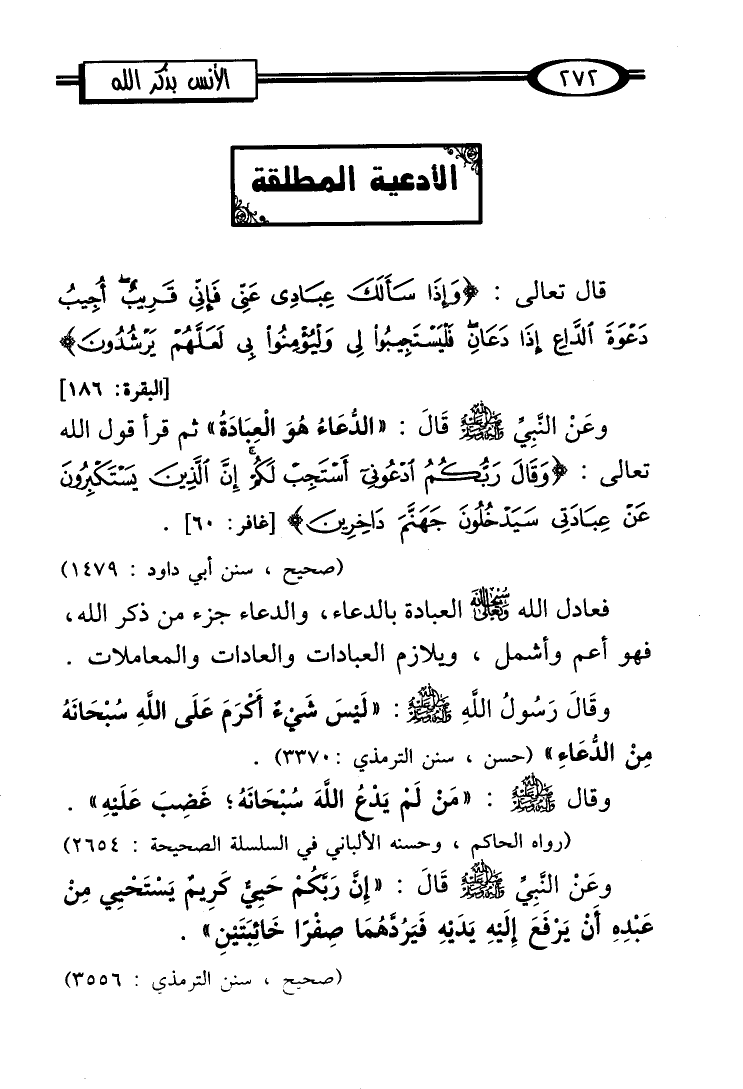 الأنس بذكر الله
٢٧٢
الأدعية المطلقة
قال تعالى : ﴿وَإِذَا سَأَلَكَ عِبَادِى عَنِّى فَإِنِّى قَرِيبٌ ۖ أُجِيبُ
دَعْوَةَ ٱلدَّاعِ إِذَا دَعَانِ ۖ فَلْيَسْتَجِيبُوا۟ لِى وَلْيُؤْمِنُوا۟ بِى لَعَلَّهُمْ يَرْشُدُونَ﴾
[البقرة: ١٨٦]
وعَنْ النَّبِيِّ ﷺ قَالَ : «الدُّعَاءُ هُوَ الْعِبَادَةُ» ثم قرأ قول الله
تعالى : ﴿وَقَالَ رَبُّكُمُ ٱدْعُونِىٓ أَسْتَجِبْ لَكُمْ ۚ إِنَّ ٱلَّذِينَ يَسْتَكْبِرُونَ
عَنْ عِبَادَتِى سَيَدْخُلُونَ جَهَنَّمَ دَاخِرِينَ﴾ [غافر: ٦٠] .
(صحيح ، سنن أبي داود : ١٤٧٩)
فعادل الله سبحانه وتعالى العبادة بالدعاء، والدعاء جزء من ذكر الله،
فهو أعم وأشمل ، ويلازم العبادات والعادات والمعاملات .
وقَالَ رَسُولُ اللَّهِ ﷺ : «لَيْسَ شَيْءٌ أَكْرَمَ عَلَى اللَّهِ سُبْحَانَهُ
مِنْ الدُّعَاءِ» (حسن ، سنن الترمذي : ٣٣٧٠) .
وقال ﷺ : «مَنْ لَمْ يَدْعُ اللَّهَ سُبْحَانَهُ؛ غَضِبَ عَلَيْهِ» .
(رواه الحاكم ، وحسنه الألباني في السلسلة الصحيحة : ٢٦٥٤)
وعَنْ النَّبِيِّ ﷺ قَالَ : «إِنَّ رَبَّكُمْ حَيِيٌّ كَرِيمٌ يَسْتَحْيِي مِنْ
عَبْدِهِ أَنْ يَرْفَعَ إِلَيْهِ يَدَيْهِ فَيَرُدَّهُمَا صِفْرًا خَائِبَتَيْنِ» .
(صحيح ، سنن الترمذي : ٣٥٥٦)